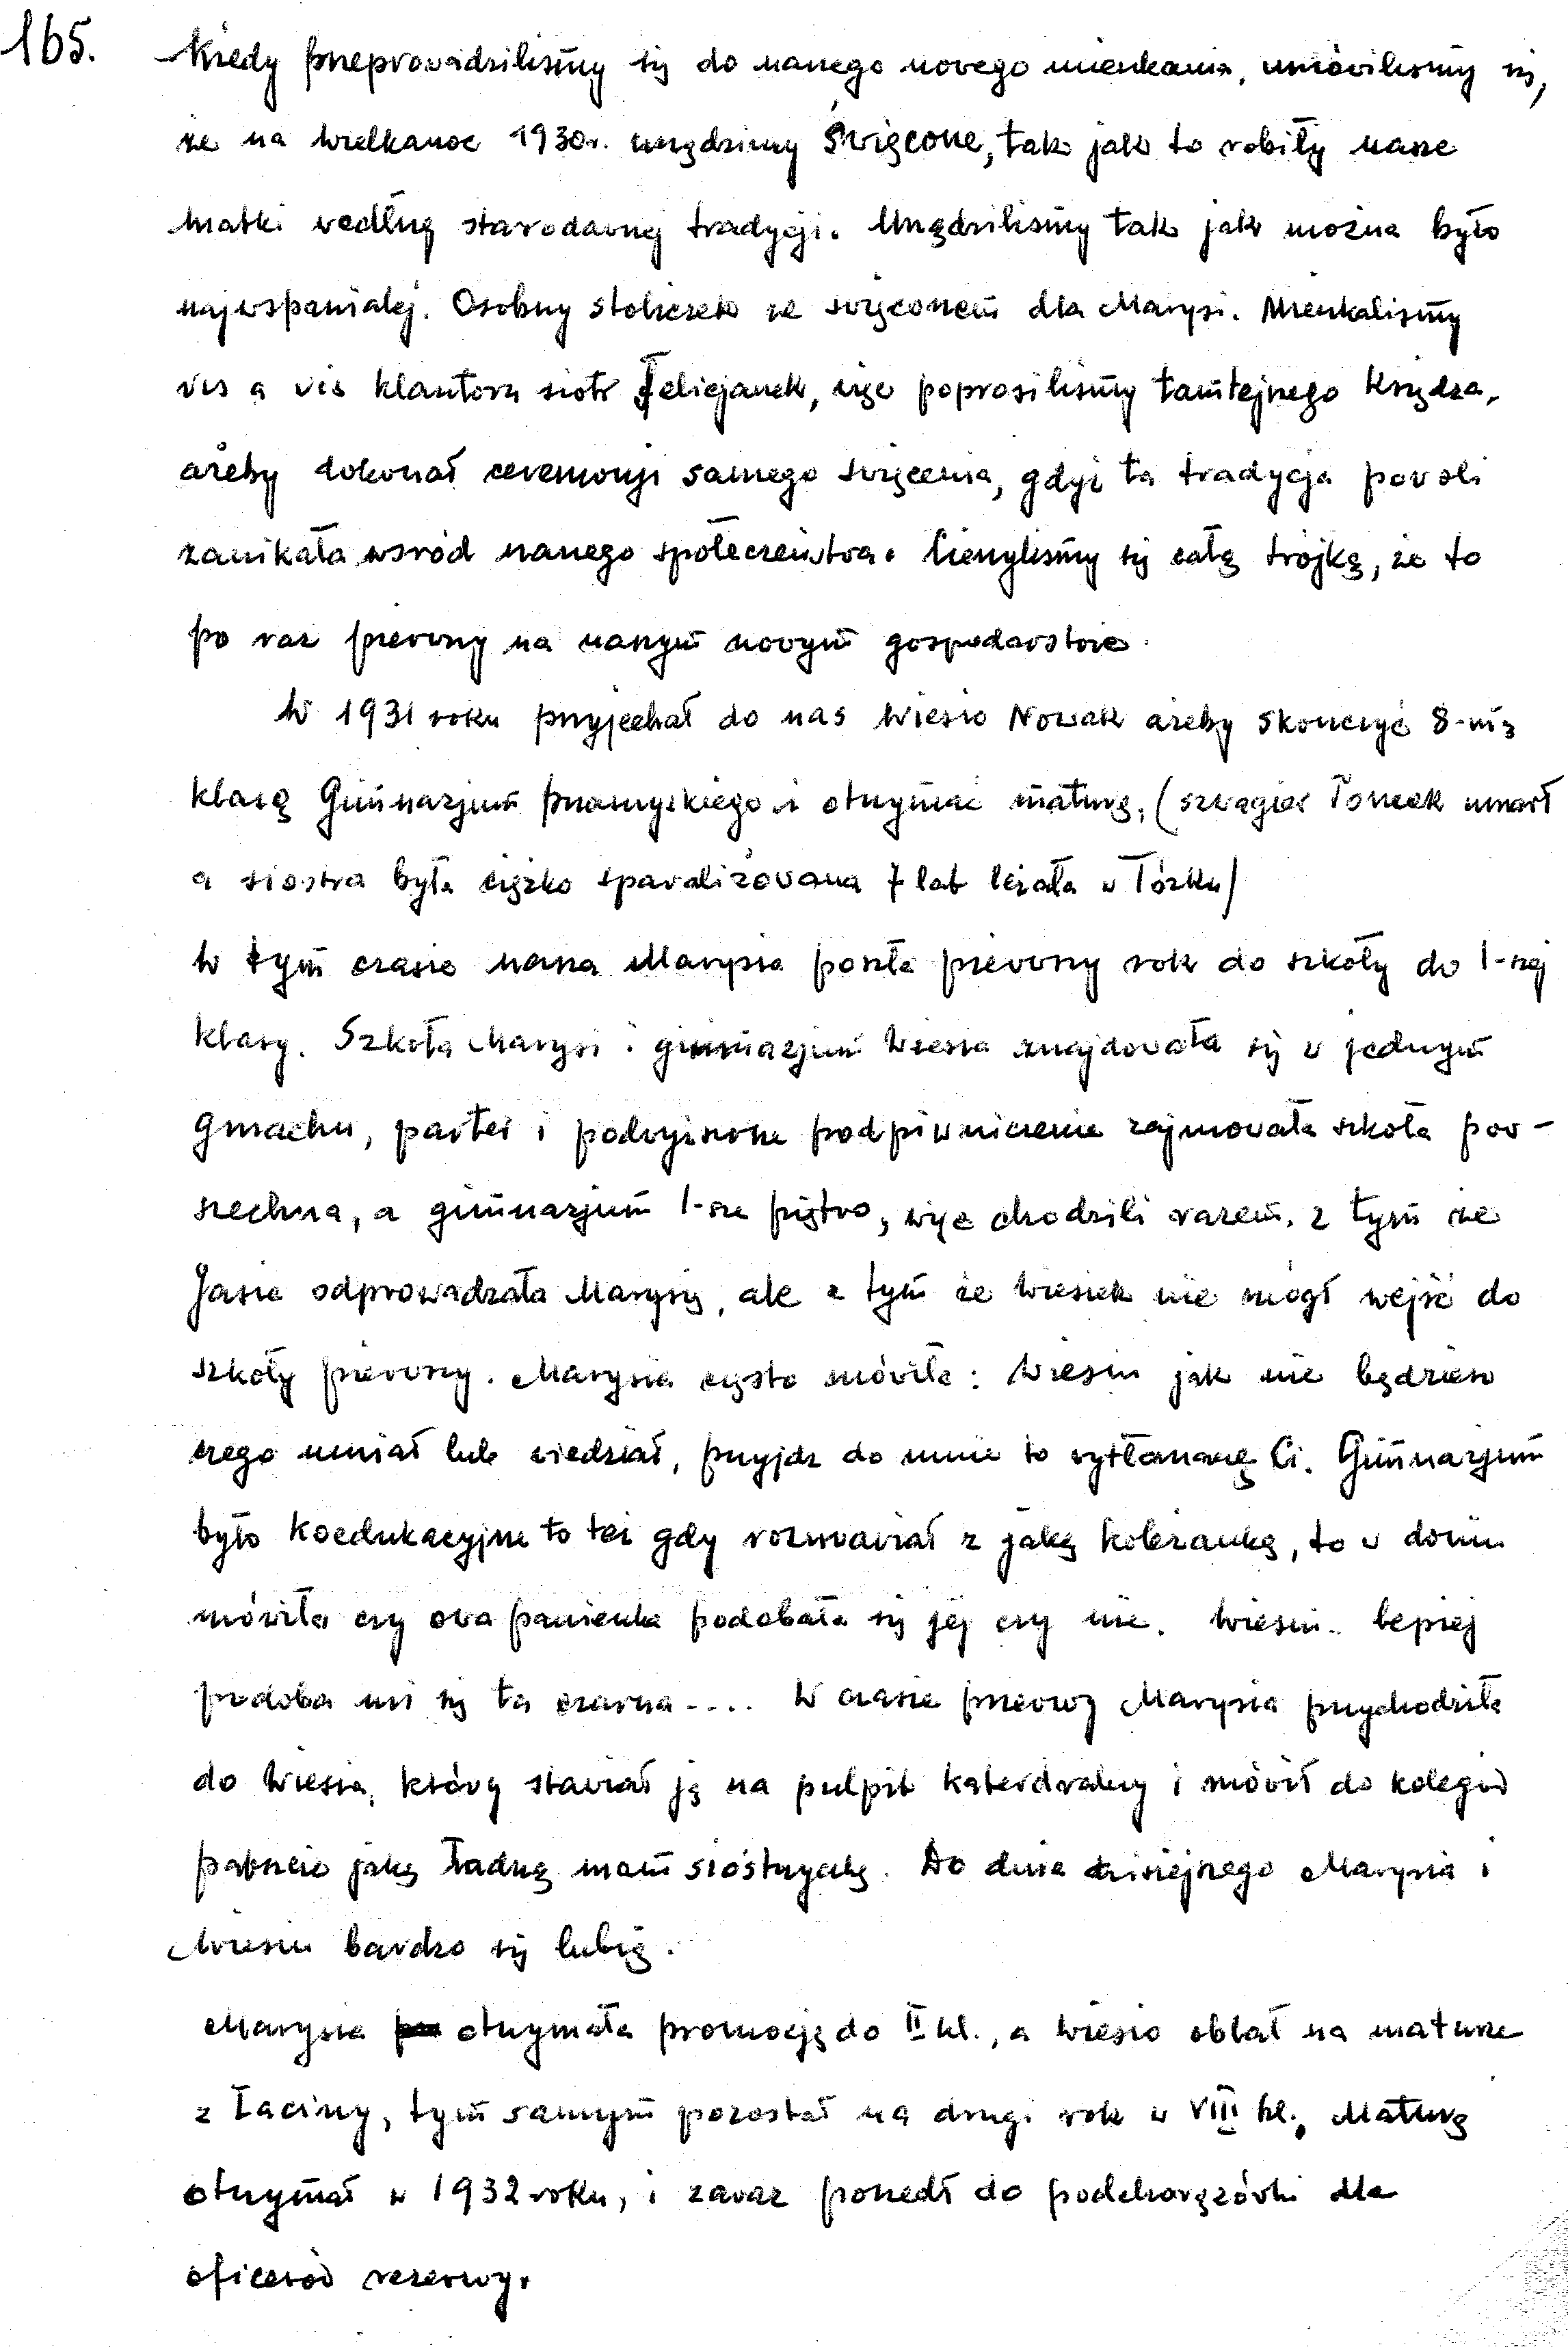 165. Kiedy przeprowadziliśmy się do naszego nowego mieszkania, umówiliśmy się,
że na Wielkanoc 1930r. urządzimy święcone, tak jak to robiły nasze
matki według starodawnej tradycji. Urządziliśmy tak jak można było
najwspanialej. Osobny stoliczek ze święconem dla Marysi. Mieszkaliśmy
vis a vis klasztoru siotr Felicjanek, więc poprosiliśmy tamtejszego księdza,
ażeby dokonał ceremonji samego święcenia, gdyż ta tradycja powoli
zanikała wśród naszego społeczeństwa. Cieszyliśmy się całą trójką, że to
po raz pierwszy na naszym nowym gospodarstwie.
W 1931 roku przyjechał do nas Wiesio Nowak ażeby skończyć 8-mą
klasę Gimnazjum przasnyskiego i otrzymać maturę, (szwagier Tomek umarł
a siostra była ciężko sparaliżowana 7 lat leżała w łóżku)
W tym czasie nasza Marysia poszła pierwszy rok do szkoły do I-szej
klasy. Szkoła Marysi i gimnazjum Wiesia znajdowała się w jednym
gmachu, parter i podwyższone podpiwniczenie zajmowała szkoła pow-
szechna, a gimnazjum I-sze piętro, więc chodzili razem, z tym że
Jasia odprowadzała Marysię, ale z tym że Wiesiek nie mógł wejść do
szkoły pierwszy. Marysia często mówiła: Wiesiu jak nie będziesz
czego umiał lub wiedział, przyjdź do mnie to wytłomaczę Ci. Gimnazjum
było koedukacyjne to też gdy rozmawiał z jaką koleżanką, to w domu
mówiła czy owa panienka podobała się jej czy nie. Wiesiu.. lepiej
podoba mi się ta czarna.... W czasie przerwy Marysia przychodziła
do Wiesia, który stawiał ją na pulpit katerdralny i mówił do kolegów
patrzcie jaką ładną mam siostrzyczkę. Do dnia dzisiejszego Marysia i
Wiesiu bardzo się lubią.
Marysia otrzymała promocję do II kl., a Wiesio oblał na maturze
z łaciny, tym samym pozostał na drugi rok w VIII kl., Maturę
otrzymał w 1932 roku, i zaraz poszedł do podchorążówki dla
oficerów rezerwy.